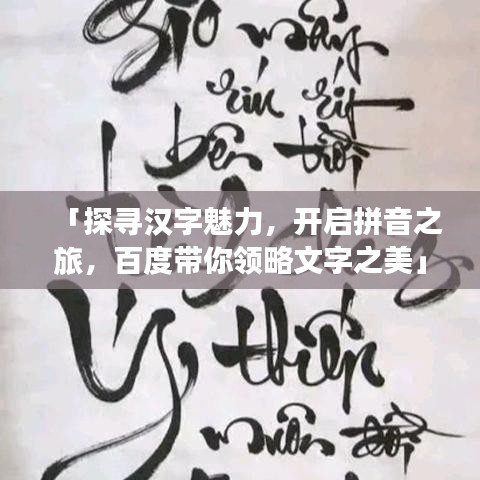 gió mây
ríu rít
bên trời
「探寻汉字魅力，开启拼音之
旅，百度带你领略文字之美」
Ý thiền
muôn đời